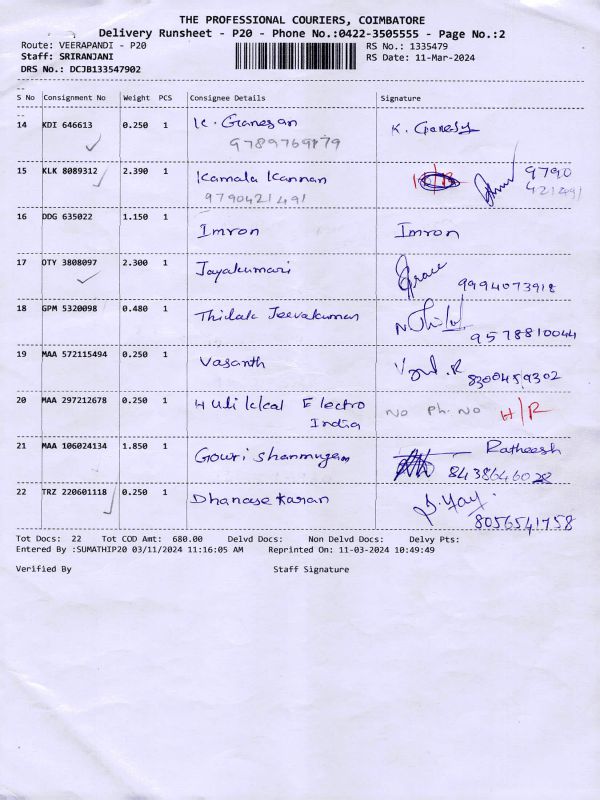 THE PROFESSIONAL COURIERS, COIMBATORE
Delivery Runsheet - P20 - Phone No.:0422-3505555 - Page No.:2
Route: VEERAPANDI - P20 RS No.: 1335479
Staff: SRIRANJANI RS Date: 11-Mar-2024
DRS No.: DCJB133547902
S No Consignment No Weight PCS Consignee Details Signature
14 KDI 646613 0.250 1 K. Ganesan K. Ganesh
15 KLK 8089312 2.390 1 Kamala Kannan 9790
9790421491 421491
16 DDG 635022 1.150 1 Imron Imron
17 DTY 3808097 2.300 1 Jayakumari Grace 9994073918
18 GPM 5320098 0.480 1 Thilak Jeevakumar 9578810044
19 MAA 572115494 0.250 1 Vasanth 8300459302
20 MAA 297212678 0.250 1 Electro No Ph. No H/R
India
21 MAA 106024134 1.850 1 Gowri Shanmugam Ratheesh
8438646028
22 TRZ 220601118 0.250 1 Dhanasekaran
8056541758
Tot Docs: 22 Tot COD Amt: 680.00 Delvd Docs: Non Delvd Docs: Delvy Pts:
Entered By :SUMATHIP20 03/11/2024 11:16:05 AM Reprinted On: 11-03-2024 10:49:49
Verified By Staff Signature